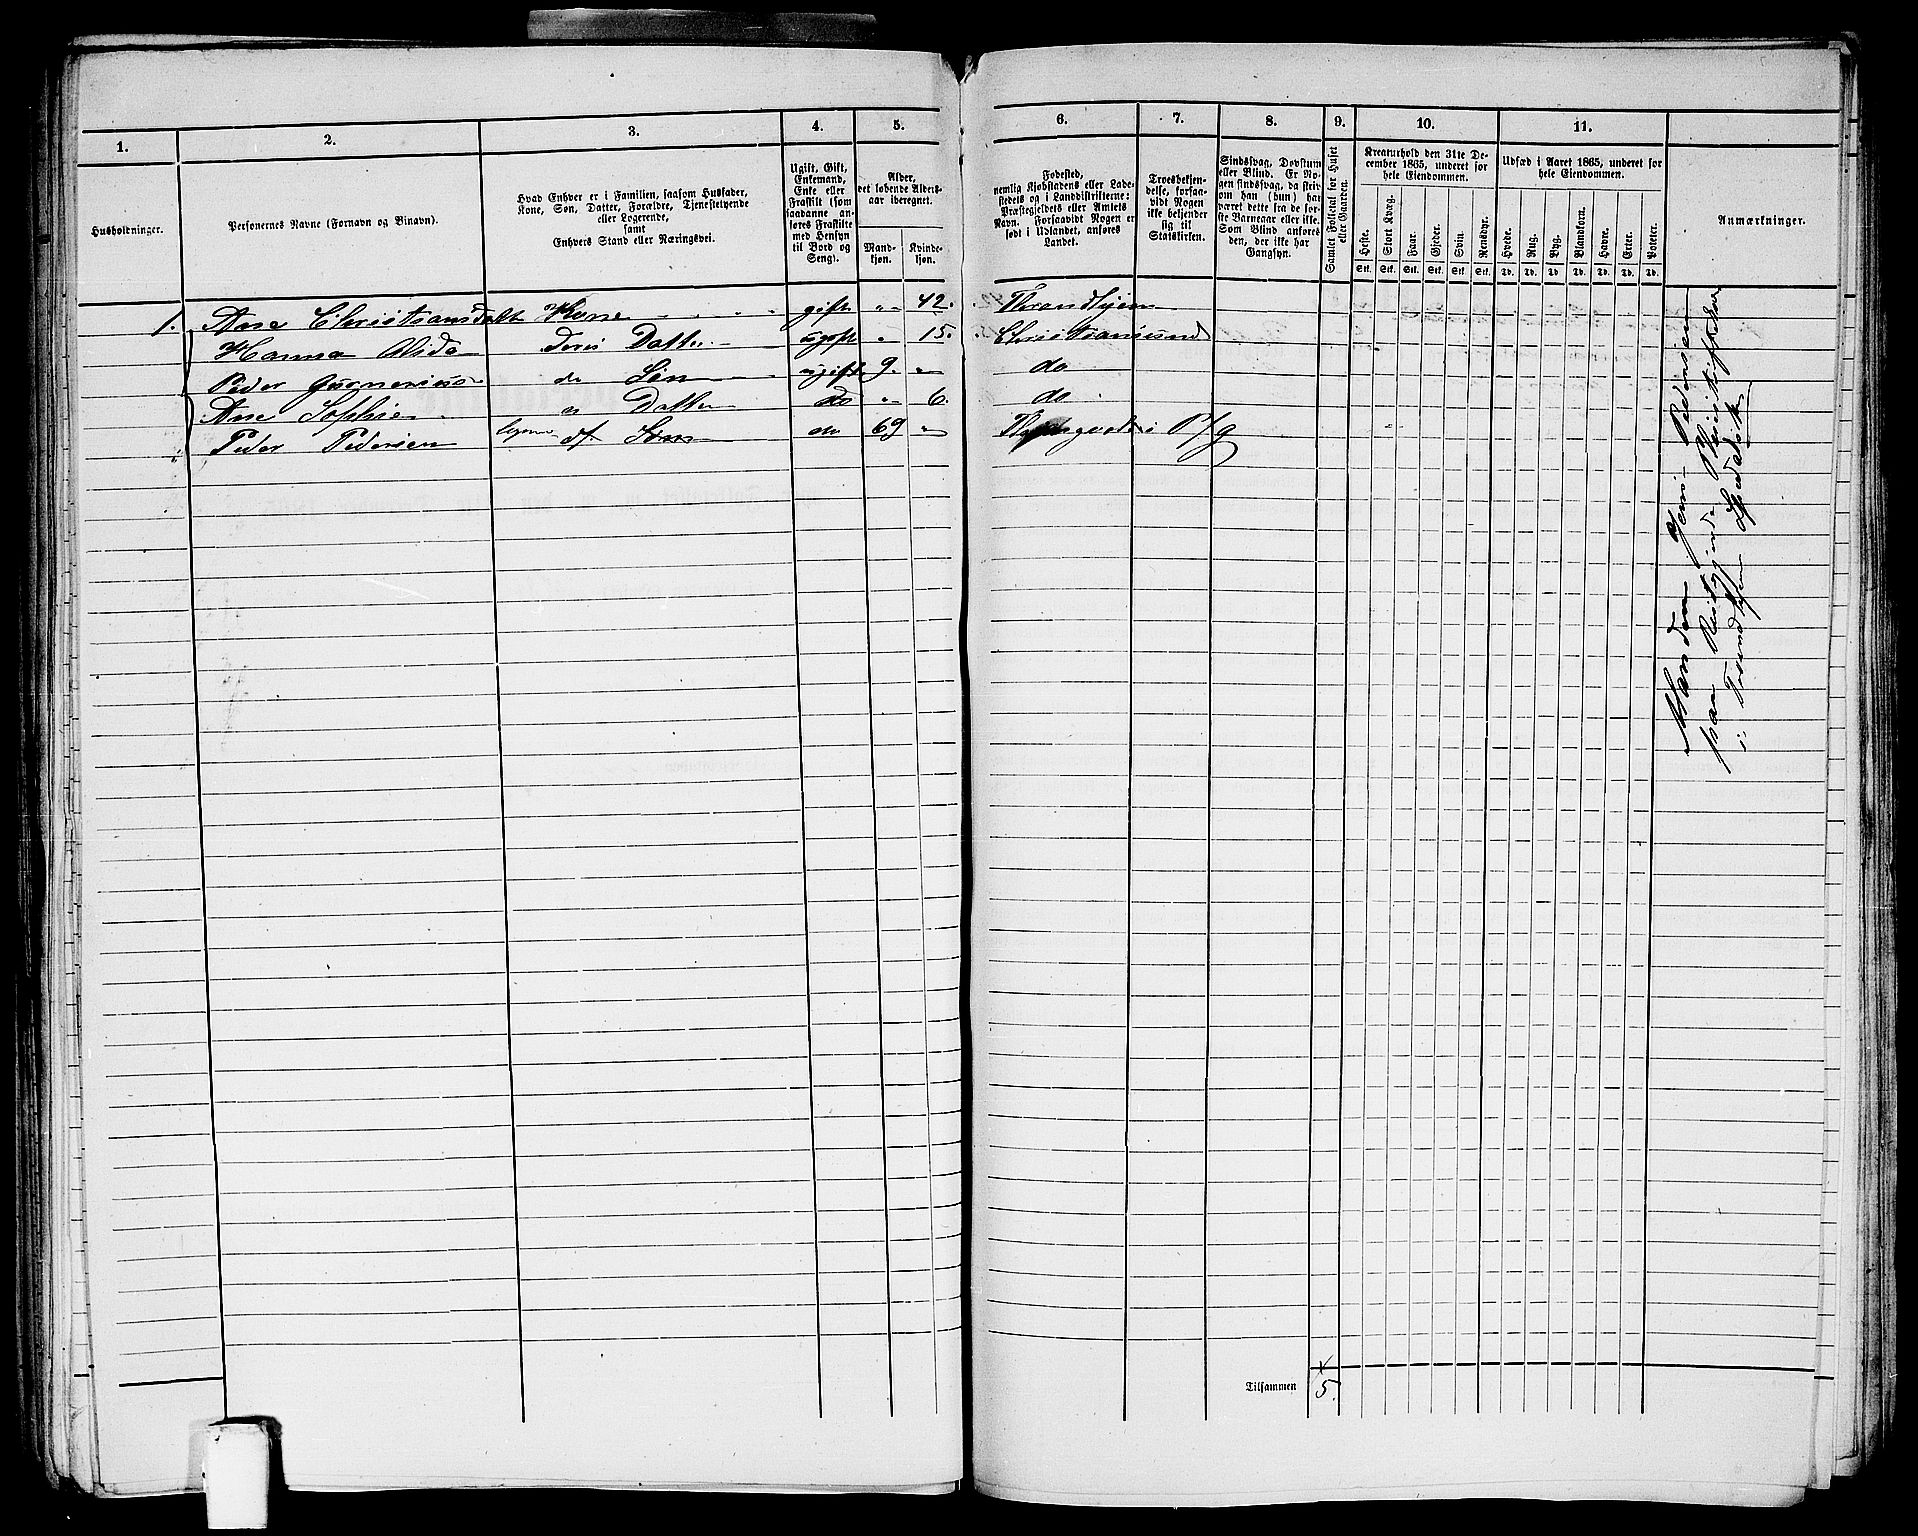 1. 2. 3. 4. 5. 6. 7. 8. 9. 10. 11.
Husholdninger.
Personernes Navne (Fornavn og Binavn).
Hvad Enhver er i Familien, saasom Husfader,
Kone, Søn, Datter, Forældre, Tjenestetyende
eller Logerende,
samt
Enhvers Stand eller Næringsvei.
Ugift, Gift,
Enkemand,
Enke eller
Fraskilt (som
saadanne an-
føres Fraskilte
med Hensyn
til Bord og
Seng).
Alder,
det løbende Alders-
aar iberegnet.
Mand-
kjøn.
Kvinde-
kjøn.
Fødested,
nemlig Kjøbstadens eller Lade-
stedets og i Landdistrikterne:
Præstegjeldets eller Amtets
Navn. Forsaavidt Nogen er
født i Udlandet, anføres
Landet.
Troesbekjen-
delse, forsaa-
vidt Nogen
ikke bekjender
sig til
Statskirken.
Sindssvag, Døvstum
eller Blind. Er No-
gen sindssvag, da skriv
om han (hun) har
været dette fra de før-
ste Barneaar eller ikke.
Som Blind anføres
den, der ikke har
Gangsyn.
Samlet Folketal for Huset
eller Gaarden.
Kreaturhold den 31te De-
cember 1865, underet for
hele Eiendommen.
Heste. Stort Kvæg. Faar. Gjeder. Svin. Rensdyr.
Stk. Stk. Stk. Stk. Stk. Stk.
Udsæd i Aaret 1865, underet for
hele Eiendommen.
Hvede. Rug. Byg. Blandkorn. Havre. Erter. Poteter.
Td. Td. Td. Td. Td. Td. Td.
Anmærkninger.
1. Ane Christiansdatt Kone gift " 42. Thrandhjem
Hanna Alida Deres Datter ugift " 15. Christiansund
Peder do Søn ugift 9. " do
Ane Sophie " Datter do " 6. do
Peder Pedersen do 69 "
Manden Jens Pedersen
paa Reitgjerdes Pleiestiftelse
i Trondhjem Spedalsk
Tilsammen 5.